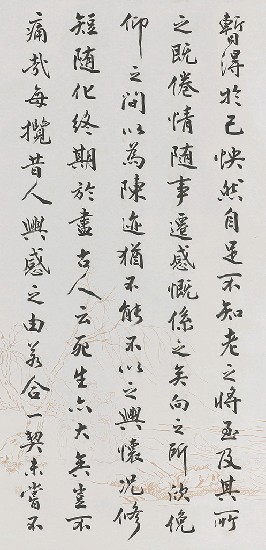 暫得於己怏然自足不知老之將至及其所
之既倦情隨事遷感慨係之矣向之所欣俛
仰之間以為陳迹猶不能不以之興懷況修
短隨化終期於盡古人云死生亦大矣豈不
痛哉每攬昔人興感之由若合一契未嘗不